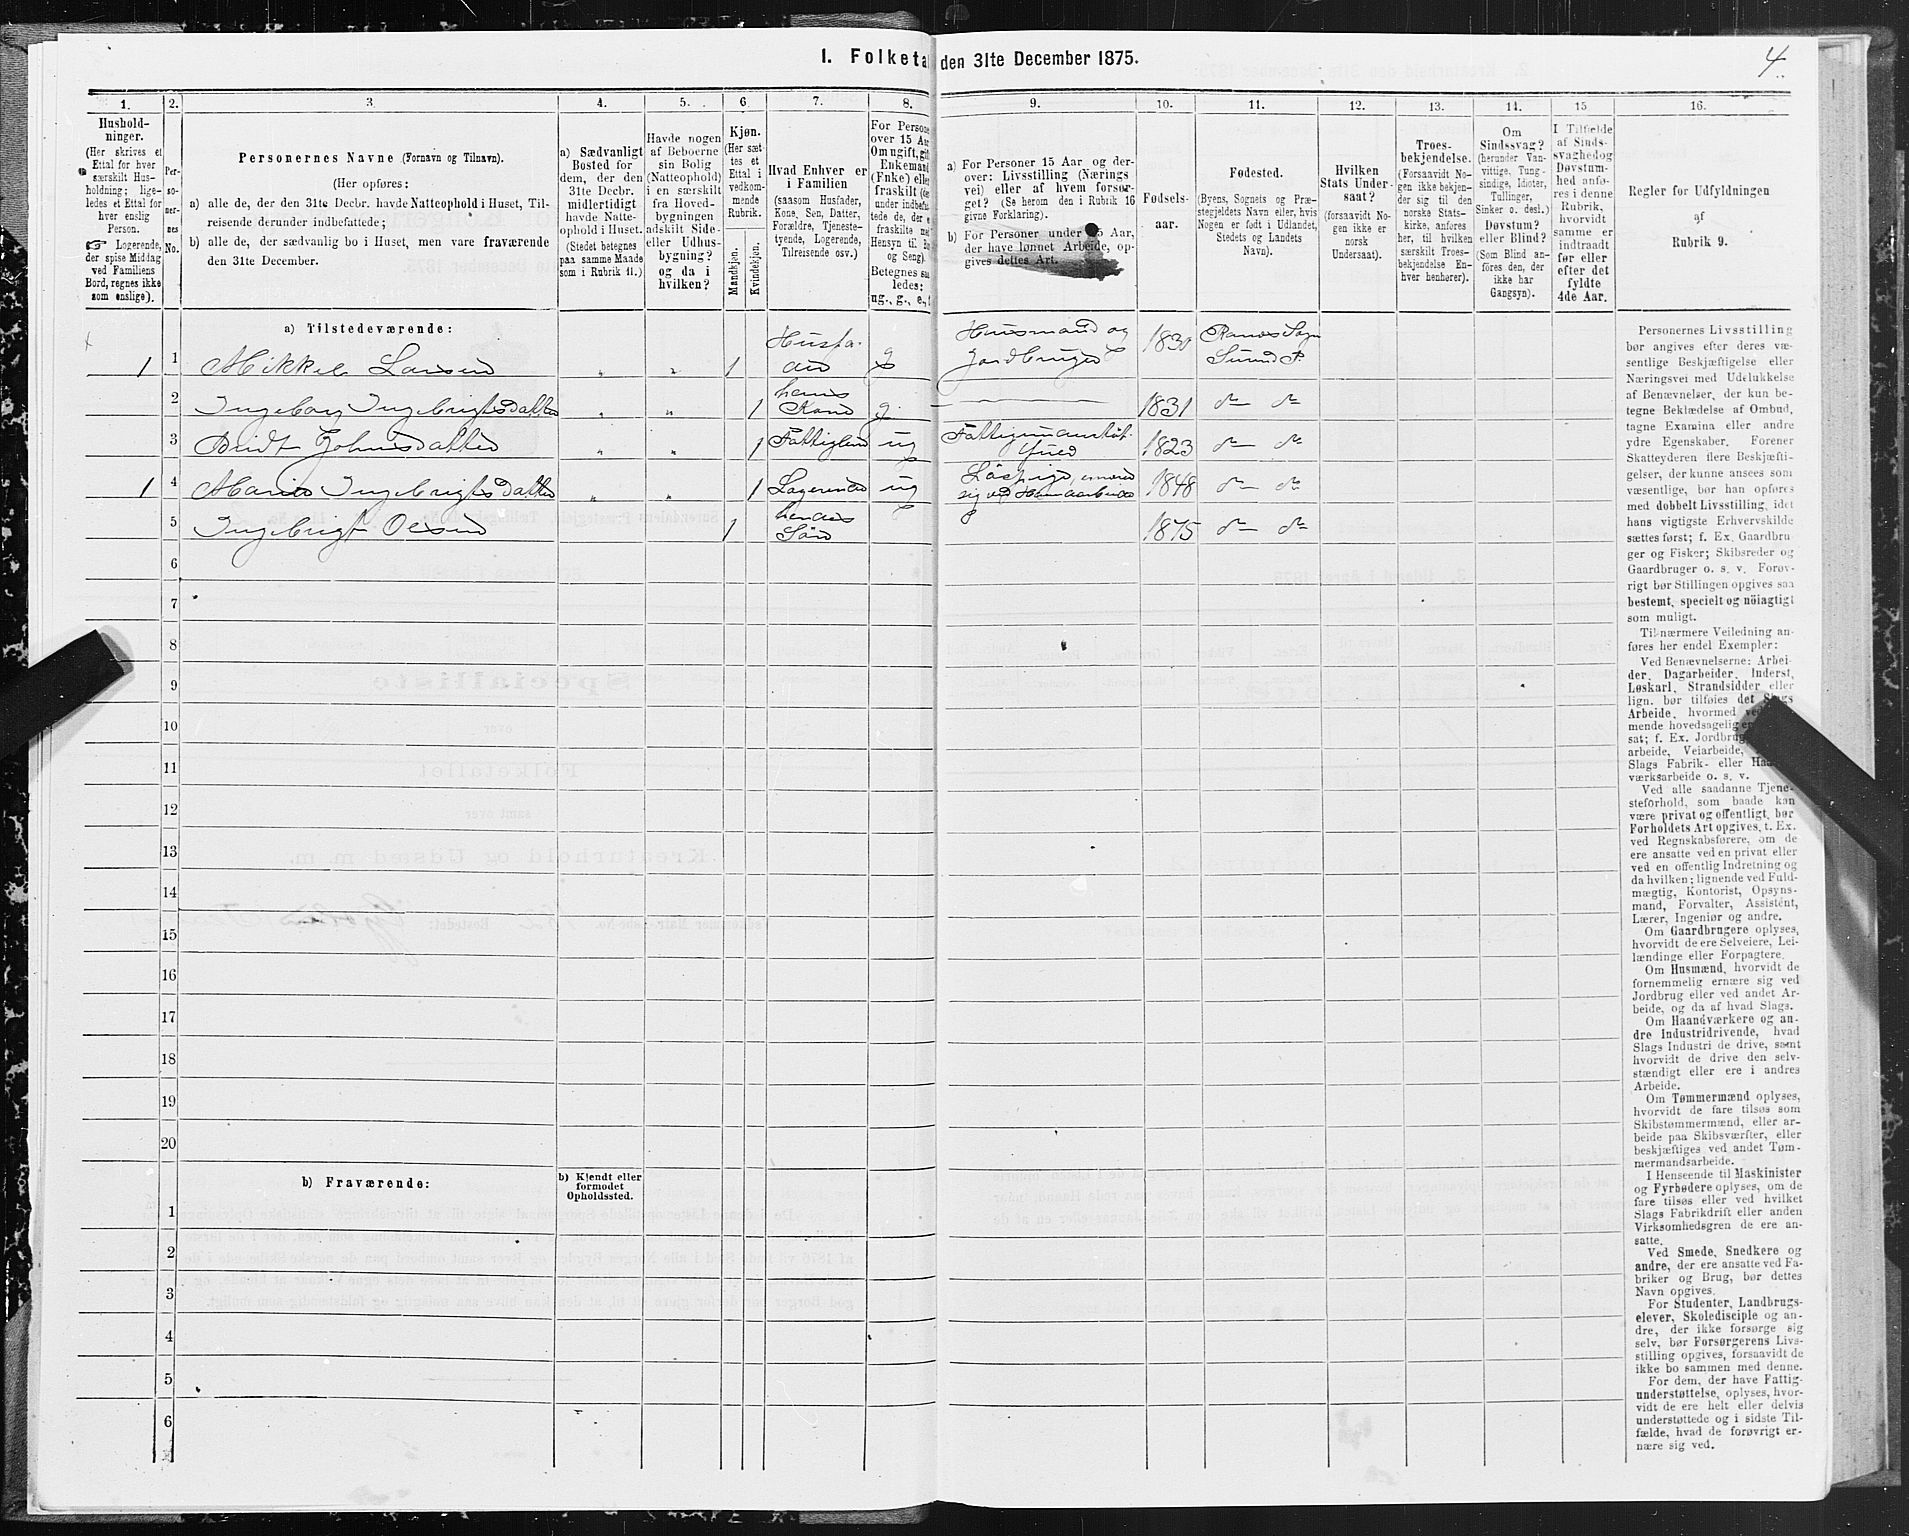 1. Folketal den 31te December 1875.
4
1.
2.
3.
4.
5.
6.
7.
8.
9.
10.
11.
12.
13.
14.
15
16.
Hushold-
ninger.
(Her skrives et
Ettal for hver
særskilt Hus-
holdning; lige-
ledes et Ettal for
hver enslig
Person.
☞ Logerende,
der spise Middag
ved Familiens
Bord, regnes ikke
som enslige).
Per-
so-
ner-
nes
No.
Personernes Navne (Fornavn og Tilnavn).
(Her opføres:
a) alle de, der den 31te Decbr. havde Natteophold i Huset, Til-
reisende derunder indbefattede;
b) alle de, der sædvanlig bo i Huset, men vare fraværende
den 31te December.
a) Sædvanligt
Bosted for
dem, der den
31te Decbr.
midlertidigt
havde Natte-
ophold i Huset.
(Stedet betegnes
paa samme Maade
som i Rubrik 11.)
Havde nogen
af Beboerne
sin Bolig
(Natteophold)
i en særskilt
fra Hoved-
bygningen
adskilt Side-
eller Udhus-
bygning?
og da i
hvilken?
Kjøn.
(Her sæt-
tes et
Ettal i
vedkom-
mende
Rubrik.
Mandkjøn.
Kvindekjøn.
Hvad Enhver er
i Familien
(saasom Husfader,
Kone, Søn, Datter,
Forældre, Tjeneste-
tyende, Logerende,
Tilreisende osv.)
For Persone
over 15 Aar
Om ugift, gift
Enkemand
(Enke) elle
fraskilt (de
under indbefat
tede de, der e
fraskilte med
Hensyn til Bo
og Seng).
Betegnes saa
ledes:
ug., g., e., f
a) For Personer 15 Aar og der-
over: Livsstilling (Nærings
vei) eller af hvem forsør-
get? (Se herom den i Rubrik 16
givne Forklaring).
b) For Personer under 15 Aar,
der have lønnet Arbeide, op-
gives dettes Art.
Fødsels-
aar.
Fødested.
(Byens, Sognets og Præ-
stegjeldets Navn eller, hvis
Nogen er født i Udlandet,
Stedets og Landets
Navn).
Hvilken
Stats Under-
saat?
(forsaavidt No-
gen ikke er
norsk
Undersaat).
Troes-
bekjendelse.
(Forsaavidt No-
gen ikke bekjen-
der sig til den
norske Stats-
kirke, anføres
her, til hvilken
særskilt Troes-
bekjendelse En-
hver henhører).
Om
Sindssvag?
(herunder Van-
vittige, Tung-
sindige, Idioter,
Tullinger,
Sinker o. desl.)
Døvstum?
eller Blind?
(Som Blind an-
føres den, der
ikke har
Gangsyn).
I Tilfælde
af Sinds-
svaghed og
Døvstum-
hed anfø-
res i denne
Rubrik,
hvorvidt
samme er
indtraadt
før eller
efter det
fyldte
4de Aar.
Regler for Udfyldningen
af
Rubrik 9.
a) Tilstedeværende:
1 1 Mikkel Larsen „ „ 1 Husfa-
der g Huusmand og
Jordbruger 1830 Ranes Sogn
Surend. P.
2 Ingeborg Ingebrigtsdatter „ „ 1 hans
Kone g 1831 do do
3 Bridt Johnsdatter „ „ 1 Fattiglem ug Fattigunderstøt- 1823 do do
1 4 Marit Ingebrigtsdatter „ „ 1 Logerende ug ernærer
sig ved Haandarbeide 1848 do do
5 Ingebrigt Olsen 1 hendes
Søn 1875 do do
6
7
8
9
10
11
12
13
14
15
16
17
18
19
20
b) Fraværende:
b) Kjendt eller
formodet
Opholdssted.
1
2
3
4
5
6
Personernes Livsstilling
bør angives efter deres væ-
sentlige Beskjæftigelse eller
Næringsvei med Udelukkelse
af Benævnelser, der kun be-
tegne Beklædelse af Ombud,
tagne Examina eller andre
ydre Egenskaber. Forener
Skatteyderen flere Beskjæfti-
gelser, der kunne ansees som
væsentlige, bør han opføres
med dobbelt Livsstilling, idet
hans vigtigste Erhvervskilde
sættes først; f. Ex. Gaardbru-
ger og Fisker; Skibsreder og
Gaardbruger o. s. v. Forøv-
rigt bør Stillingen opgives saa
bestemt, specielt og nøiagtigt
som muligt.
Til nærmere Veiledning an-
føres her endel Exempler:
Ved Benævnelserne: Arbei-
der, Dagarbeider, Inderst,
Løskarl, Strandsidder eller
lign. bør tilføies det Slags
Arbeide, hvormed
mende hovedsagelig
sat; f. Ex. Jordbrug,
arbeide, Veiarbeide,
Slags Fabrik- eller Haand-
værksarbeide o. s. v.
Ved alle saadanne Tjene-
steforhold, som baade kan
være privat og offentligt, bør
Forholdets Art opgives, t. Ex.
ved Regnskabsførere, om de
ere ansatte ved en privat eller
ved en offentlig Indretning og
da hvilken; lignende ved Fuld-
mægtig, Kontorist, Opsyns-
mand, Forvalter, Assistent,
Lærer, Ingeniør og andre.
Om Gaardbrugere oplyses,
hvorvidt de ere Selveiere, Lei-
lændinge eller Forpagtere.
Om Husmænd, hvorvidt de
fornemmelig ernære sig ved
Jordbrug eller ved andet Ar-
beide, og da af hvad Slags.
Om Haandværkere og an-
dre Industridrivende, hvad
Slags Industri de drive, samt
hvorvidt de drive den selv-
stændigt eller ere i andres
Arbeide.
Om Tømmermænd oplyses,
hvorvidt de fare tilsøs som
Skibstømmermænd, eller ar-
beide paa Skibsværfter, eller
beskjæftiges ved andet Tøm-
mermandsarbeide.
I Henseende til Maskinister
og Fyrbødere oplyses, om de
fare tilsøs eller ved hvilket
Slags Fabrikdrift eller anden
Virksomhedsgren de ere an-
satte.
Ved Smede, Snedkere og
andre, der ere ansatte ved Fa-
briker og Brug, bør dettes
Navn opgives.
For Studenter, Landbrugs-
elever, Skoledisciple og an-
dre, der ikke forsørge sig
selv, bør Forsørgerens Livs-
stilling opgives, forsaavidt de
ikke bo sammen med denne.
For dem, der have Fattig-
understøttelse, oplyses, hvor-
vidt de ere helt eller delvis
understøttede og i sidste Til-
fælde, hvad de forøvrigt er-
nære sig ved.